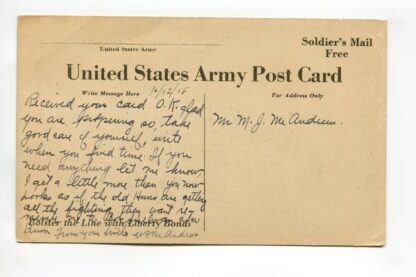 United States Army
Soldier's Mail
Free
United States Army Post Card
Write Message Here
10/12/18
Received your card O.K. glad
you are prospering so, take
good care of yourself, write
when you find time. If you
need anything let me know,
I get a little more than you now
Looks as if the old Huns are getting
all the fighting they want
Bolster the Line with Liberty Bonds
From your brother
For Address Only
Mr M. J. McAndrew